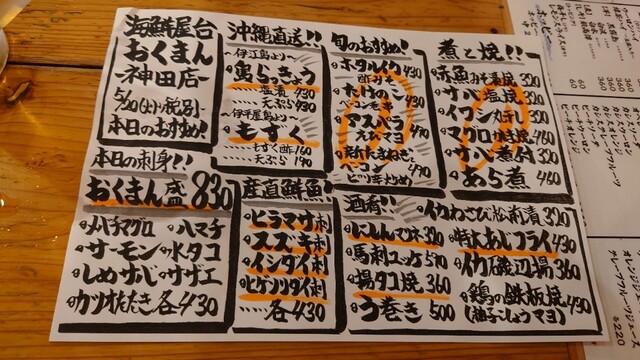 海鮮屋台
おくまん
-神田店-
5/20(火)(税別)
本日のおすすめ!
沖縄直送!!
〜伊江島より〜
島らっきょう
……塩漬 430
……天ぷら 430
〜伊平屋島より〜
もずく
……もずく酢 160
……天ぷら 190
旬のおすすめ!
ホタルイカ 430
酢みそ
たけのこ 430
ベーコン
アスパラ 470
えびマヨ
新たまねぎと 470
ベーコン
煮と焼!!
赤魚みそ漬焼 320
サバ塩焼 320
イワシ丸干し 320
マグロかま焼 460
サンマ煮付 320
あら煮 460
本日の刺身!!
おくまん盛 830
メバチマグロ
ハマチ
サーモン
水タコ
しめサバ
サザエ
カツオたたき 各430
産直鮮魚!
ヒラマサ刺
スズキ刺
イシダイ刺
ヒゲソリダイ刺
……各430
酒肴!!
にしんマリネ 320
馬刺ユッケ 570
揚タコ焼 360
う巻き 500
イカわさび松前漬 320
特大あじフライ 430
イカ磯辺揚 360
鶏の鉄板焼 490
(柚子こしょうマヨ)